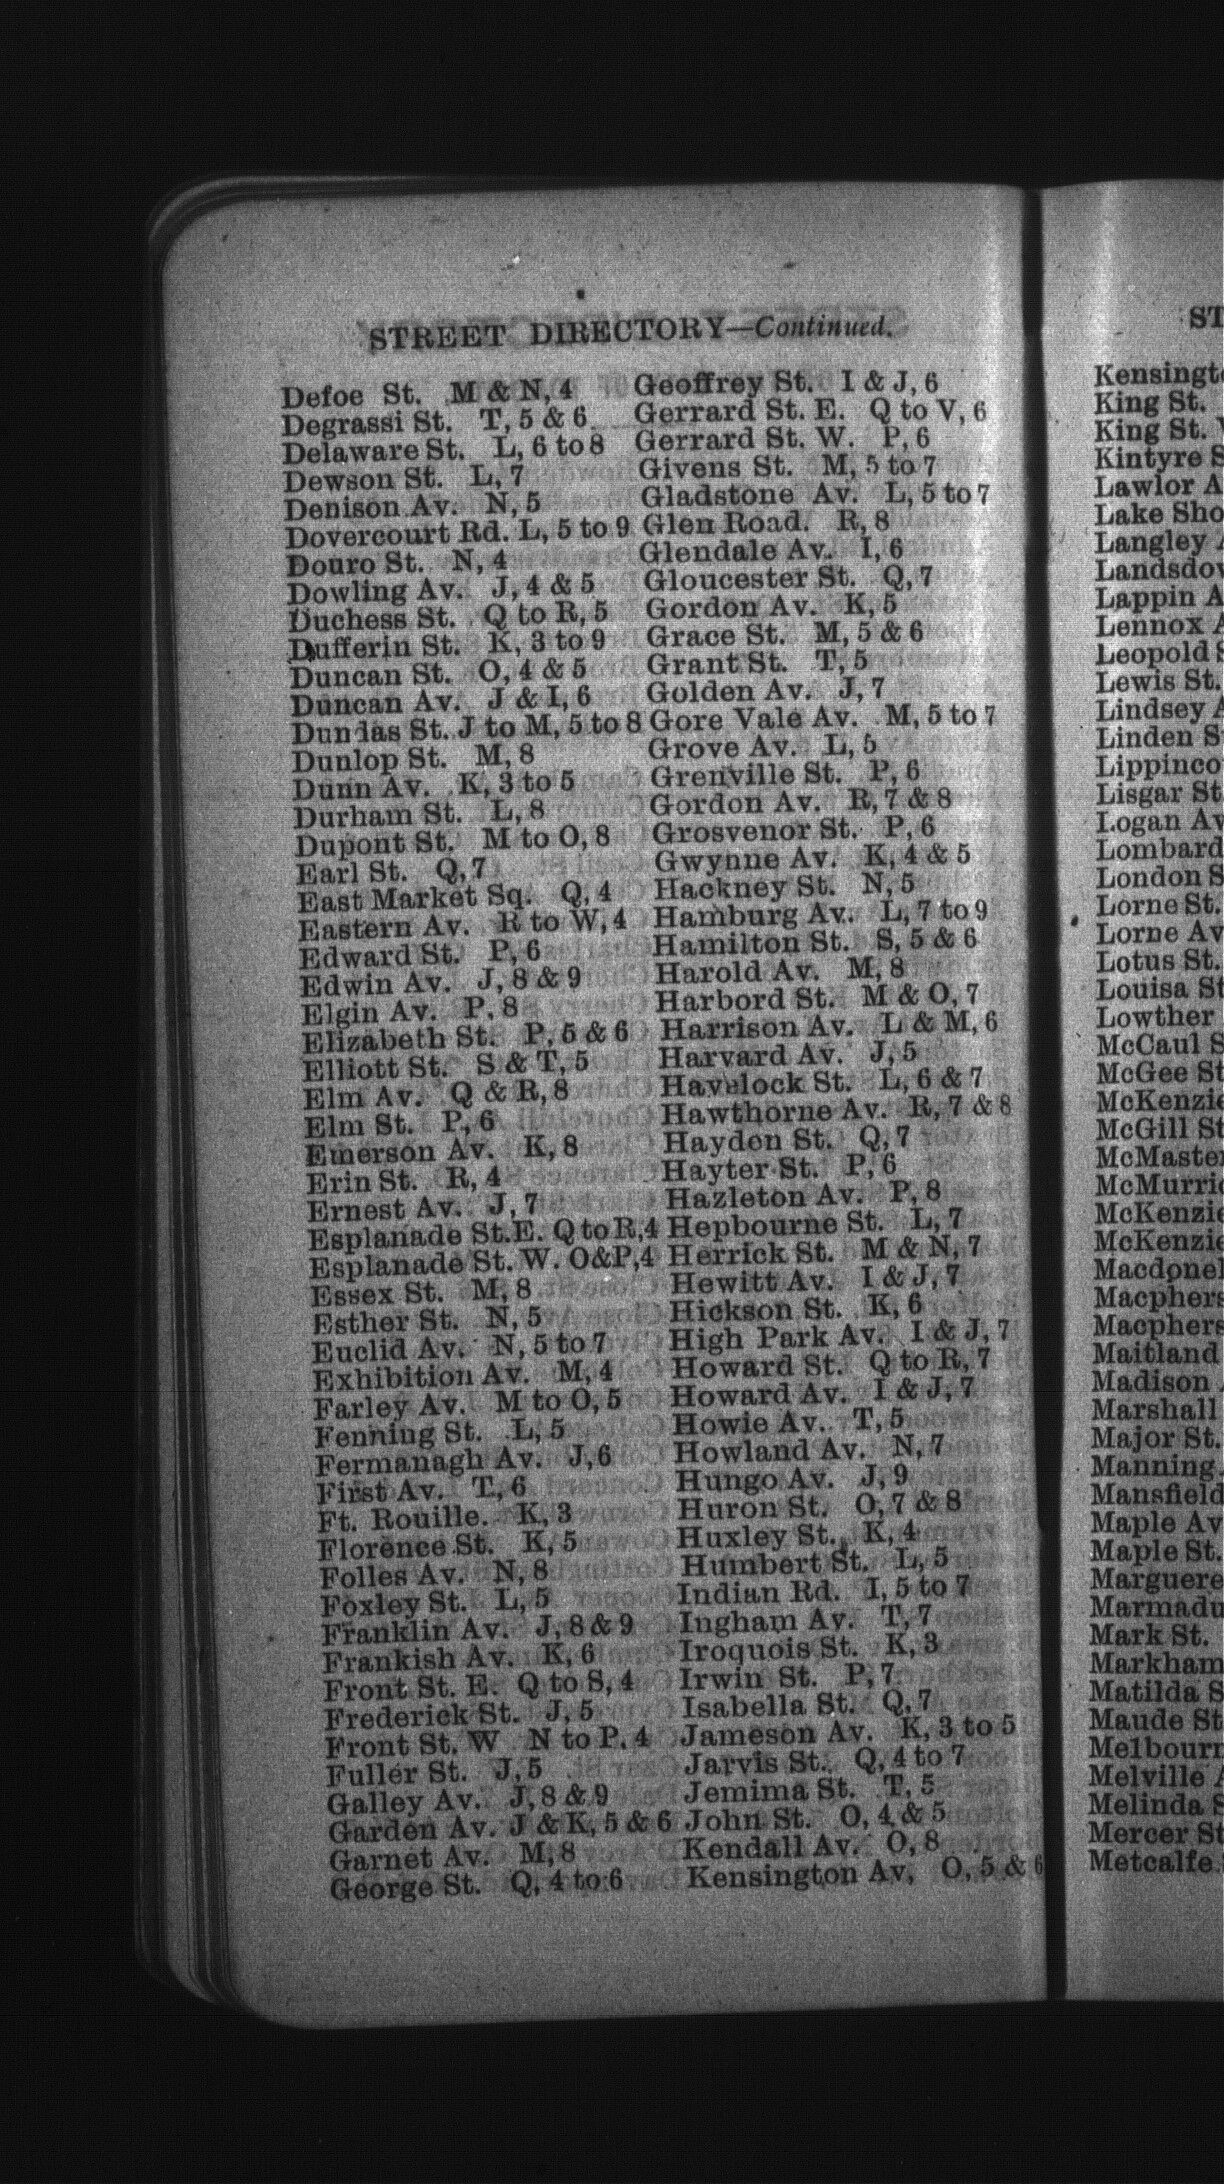 STREET DIRECTORY—Continued.
Defoe St. M & N, 4
Degrassi St. T, 5 & 6
Delaware St. L, 6 to 8
Dewson St. L, 7
Denison Av. N, 5
Dovercourt Rd. L, 5 to 9
Douro St. N, 4
Dowling Av. J, 4 & 5
Duchess St. Q to R, 5
Dufferin St. K, 3 to 9
Duncan St. O, 4 & 5
Duncan Av. J & I, 6
Dundas St. J to M, 5 to 8
Dunlop St. M, 8
Dunn Av. K, 3 to 5
Durham St. L, 8
Dupont St. M to O, 8
Earl St. Q, 7
East Market Sq. Q, 4
Eastern Av. R to W, 4
Edward St. P, 6
Edwin Av. J, 8 & 9
Elgin Av. P, 8
Elizabeth St. P, 5 & 6
Elliott St. S & T, 5
Elm Av. Q & R, 8
Elm St. P, 6
Emerson Av. K, 8
Erin St. R, 4
Ernest Av. J, 7
Esplanade St. E. Q to R, 4
Esplanade St. W. O&P, 4
Essex St. M, 8
Esther St. N, 5
Euclid Av. N, 5 to 7
Exhibition Av. M, 4
Farley Av. M to O, 5
Fenning St. L, 5
Fermanagh Av. J, 6
First Av. T, 6
Ft. Rouille. K, 3
Florence St. K, 5
Folles Av. N, 8
Foxley St. L, 5
Franklin Av. J, 8 & 9
Frankish Av. K, 6
Front St. E. Q to S, 4
Frederick St. J, 5
Front St. W N to P. 4
Fuller St. J, 5
Galley Av. J, 8 & 9
Garden Av. J & K, 5 & 6
Garnet Av. M, 8
George St. Q, 4 to 6
Geoffrey St. I & J, 6
Gerrard St. E. Q to V, 6
Gerrard St. W. P, 6
Givens St. M, 5 to 7
Gladstone Av. L, 5 to 7
Glen Road. R, 8
Glendale Av. I, 6
Gloucester St. Q, 7
Gordon Av. K, 5
Grace St. M, 5 & 6
Grant St. T, 5
Golden Av. J, 7
Gore Vale Av. M, 5 to 7
Grove Av. L, 5
Grenville St. P, 6
Gordon Av. R, 7 & 8
Grosvenor St. P, 6
Gwynne Av. K, 4 & 5
Hackney St. N, 5
Hamburg Av. L, 7 to 9
Hamilton St. S, 5 & 6
Harold Av. M, 8
Harbord St. M & O, 7
Harrison Av. L & M, 6
Harvard Av. J, 5
Havelock St. L, 6 & 7
Hawthorne Av. R, 7 & 8
Haydon St. Q, 7
Hayter St. P, 6
Hazleton Av. P, 8
Hepbourne St. L, 7
Herrick St. M & N, 7
Hewitt Av. I & J, 7
Hickson St. K, 6
High Park Av. I & J, 7
Howard St. Q to R, 7
Howard Av. I & J, 7
Howie Av. T, 5
Howland Av. N, 7
Hungo Av. J, 9
Huron St. O, 7 & 8
Huxley St. K, 4
Humbert St. L, 5
Indian Rd. I, 5 to 7
Ingham Av. T, 7
Iroquois St. K, 3
Irwin St. P, 7
Isabella St. Q, 7
Jameson Av. K, 3 to 5
Jarvis St. Q, 4 to 7
Jemima St. T, 5
John St. O, 4 & 5
Kendall Av. O, 8
Kensington Av, O, 5 & 6
ST
Kensingt
King St.
King St.
Kintyre S
Lawlor A
Lake Sho
Langley
Landsdov
Lappin A
Lennox A
Leopold S
Lewis St.
Lindsey A
Linden S
Lippinco
Lisgar St
Logan Av
Lombard
London S
Lorne St.
Lorne Av
Lotus St.
Louisa St
Lowther
McCaul S
McGee St
McKenzie
McGill St
McMaster
McMurric
McKenzie
McKenzie
Macdonel
Macphers
Macphers
Maitland
Madison
Marshall
Major St.
Manning
Mansfield
Maple Av
Maple St.
Marguere
Marmadu
Mark St.
Markham
Matilda S
Maude St
Melbourn
Melville A
Melinda S
Mercer St
Metcalfe